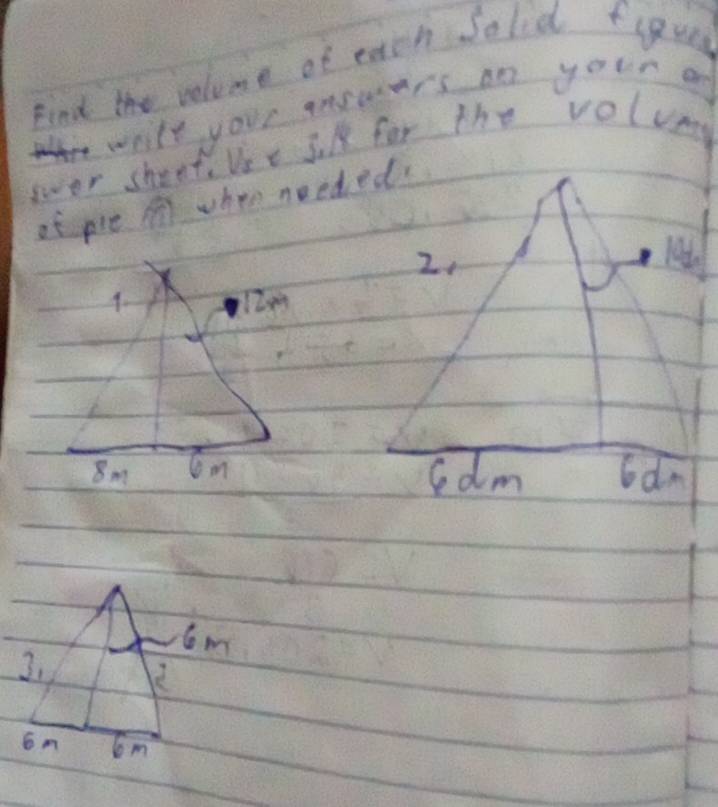 Find the volume of each Solid figures
write your answers on your an
swer sheet. Use 3.14 for the volume
of pie when needed.
1. 12m
8m 6m
2.
6dm 6dm
3. 6m
6m 6m